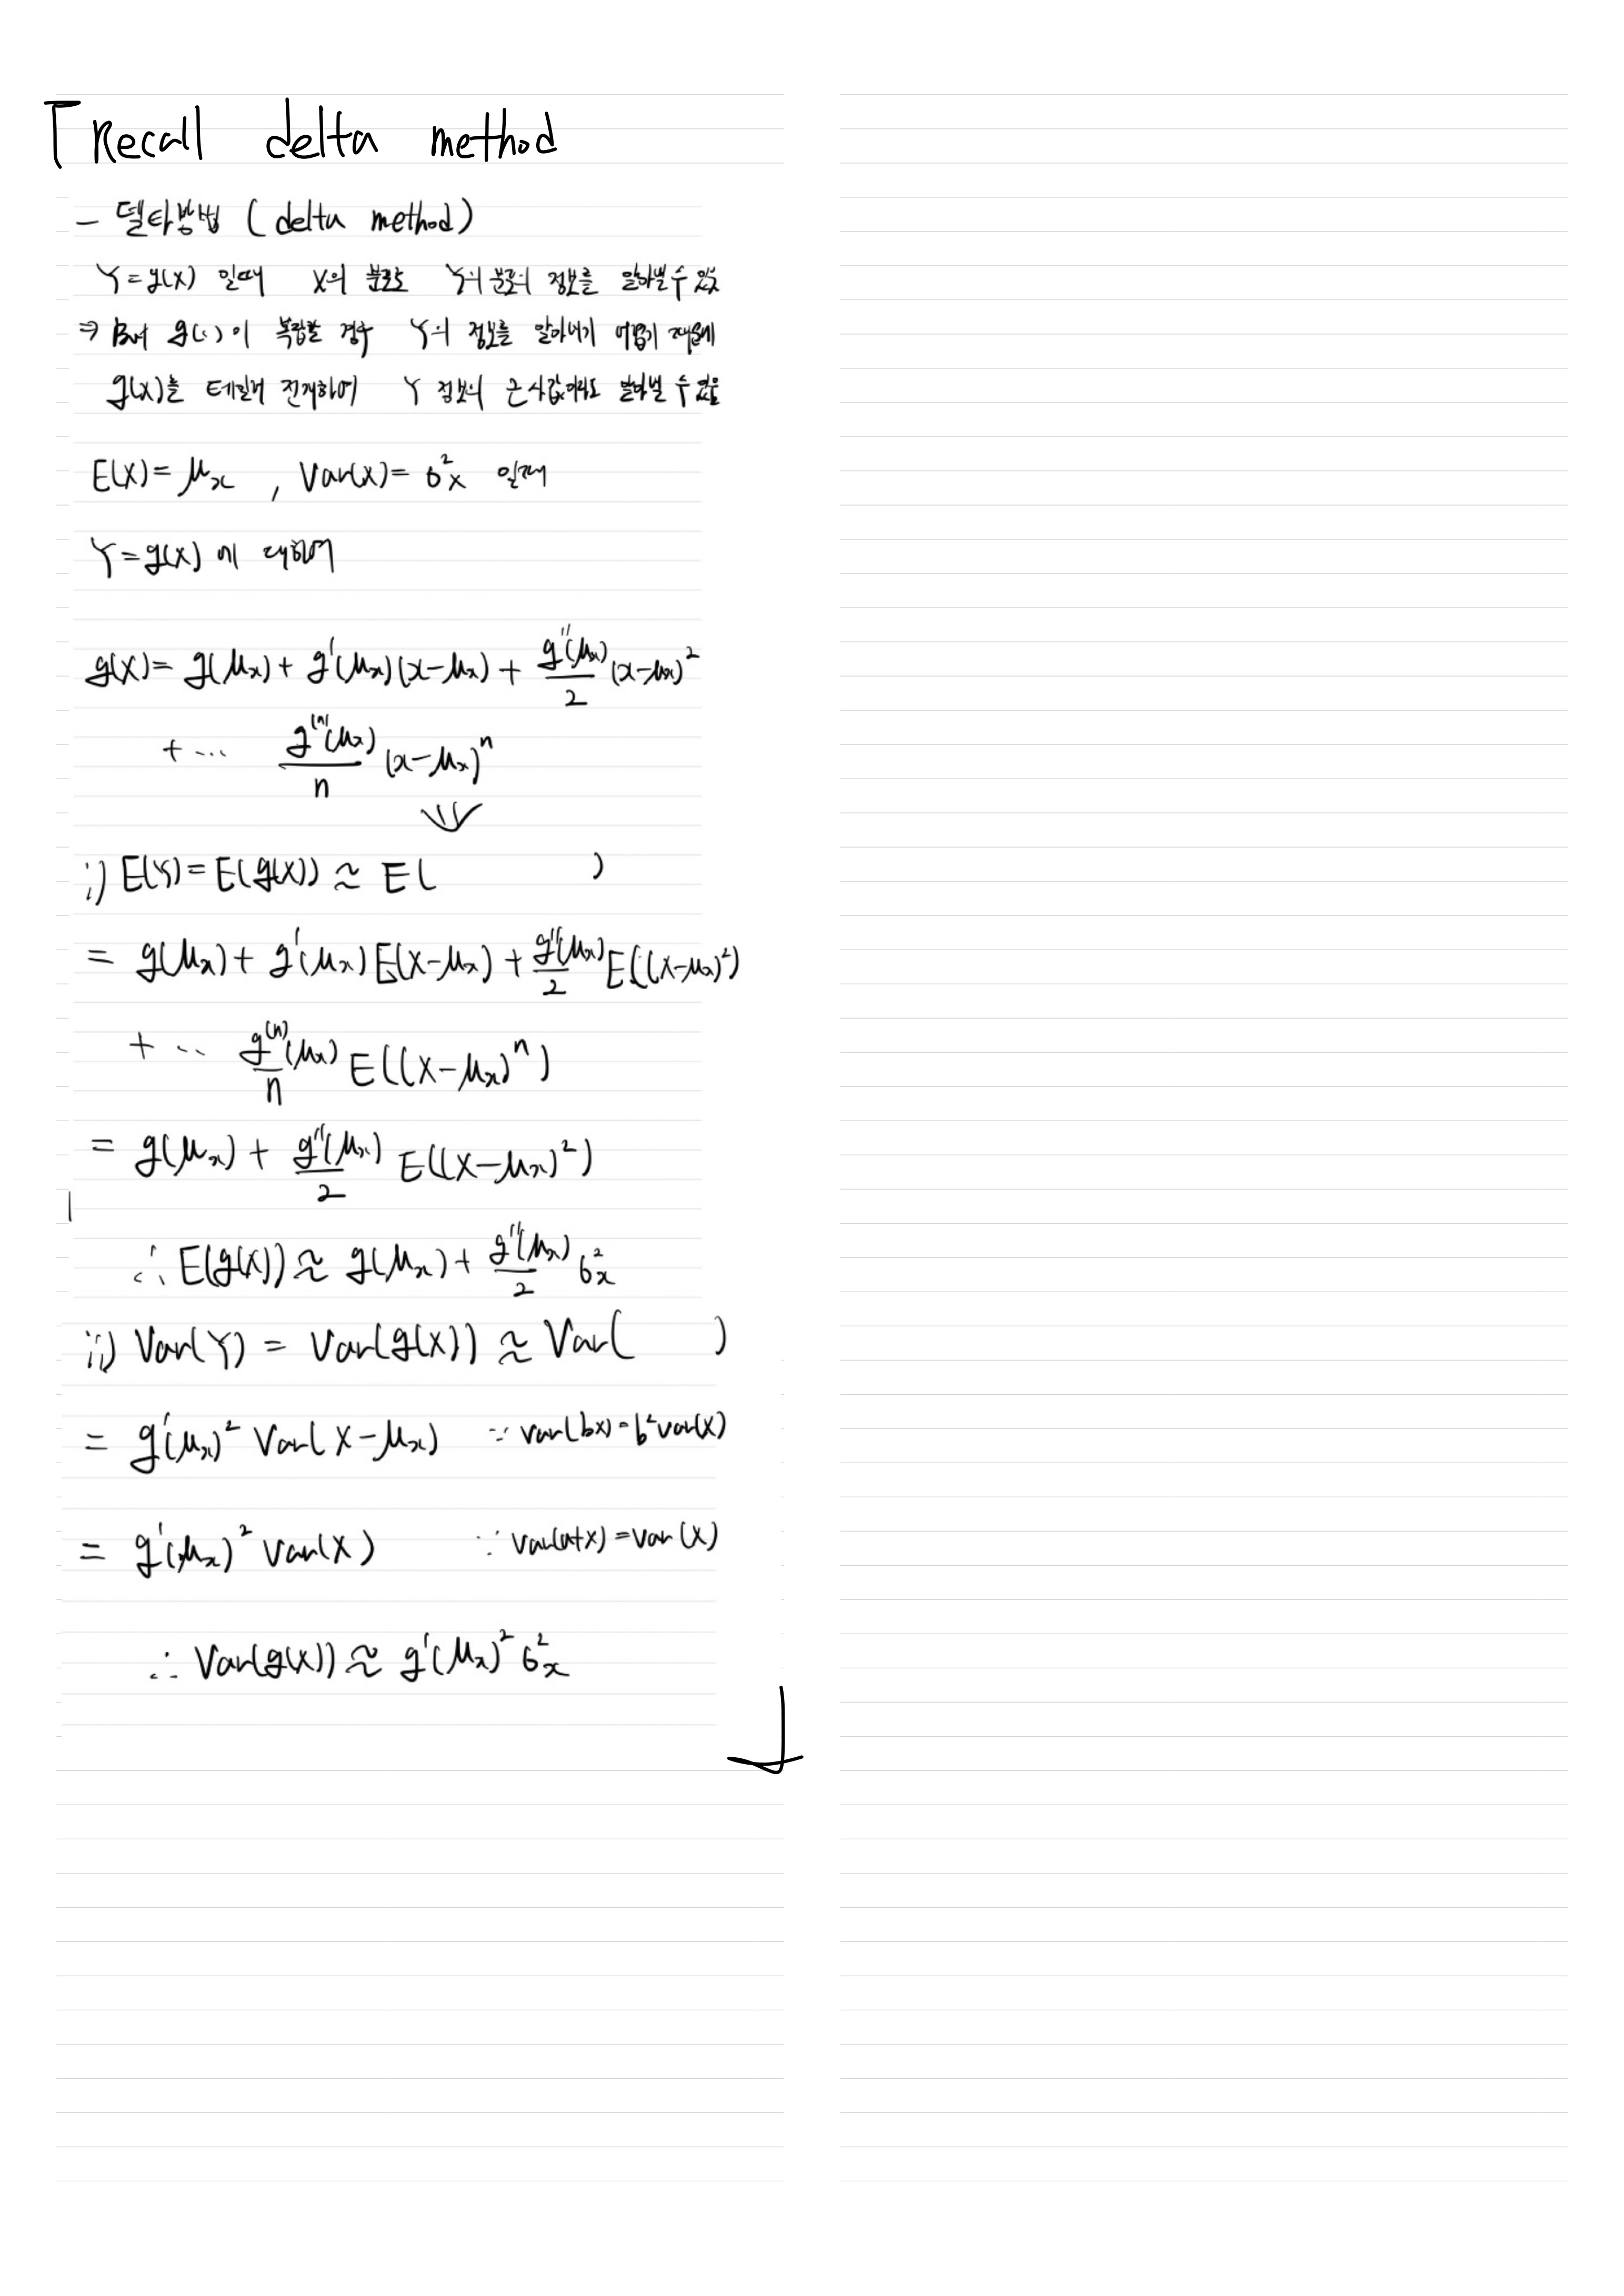 Recall delta method
- 델타방법 (delta method)
Y=g(X) 일때 X의 분포로 Y의 분포의 정보를 알아낼 수 있
⇒ But g(x)이 복잡할 경우 Y의 정보를 알아내기 어렵기 때문에
g(x)를 테일러 전개하여 Y 정보의 근사값이라도 알아낼 수 있음
E(X)=μx , Var(X)=σ²x 일때
Y=g(X) 에 대하여
g(X)= g(μx)+ g'(μx)(x-μx) + g''(μx)/2 (x-μx)²
+ ... g⁽ⁿ⁾(μx)/n (x-μx)ⁿ
i) E(Y)=E(g(X)) ≈ E( )
= g(μx)+ g'(μx)E(X-μx) + g''(μx)/2 E((X-μx)²)
+ ... g⁽ⁿ⁾(μx)/n E((X-μx)ⁿ)
= g(μx) + g''(μx)/2 E((X-μx)²)
∴ E(g(X)) ≈ g(μx) + g''(μx)/2 σ²x
ii) Var(Y) = Var(g(X)) ≈ Var( )
= g'(μx)² Var(X-μx) ∵ var(bx)=b²var(X)
= g'(μx)² Var(X) ∵ Var(a+x)=Var(X)
∴ Var(g(X)) ≈ g'(μx)² σ²x